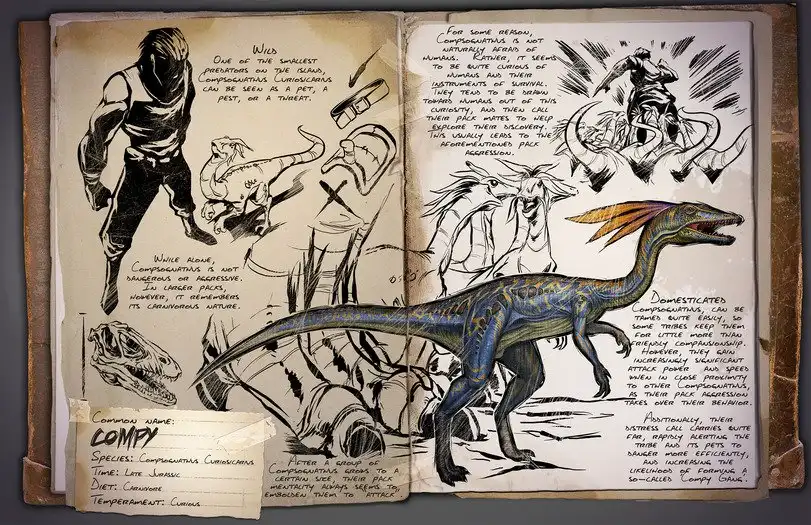 Wild
One of the smallest
predators on the island,
Compsognathus Curiosicarius
can be seen as a pet, a
pest, or a threat.
While alone,
Compsognathus is not
dangerous or aggressive.
In larger packs,
however, it remembers
its carnivorous nature.
Common name:
Compy
Species: Compsognathus Curiosicarius
Time: Late Jurassic
Diet: Carnivore
Temperament: Curious
After a group of
Compsognathus grows to a
certain size, their pack
mentality always seems to
embolden them to attack
For some reason,
Compsognathus is not
naturally afraid of
humans. Rather, it seems
to be quite curious of
humans and their
instruments of survival.
They tend to be drawn
toward humans out of this
curiosity, and then call
their pack mates to help
explore their discovery.
This usually leads to the
aforementioned pack
aggression.
Domesticated
Compsognathus, can be
tamed quite easily, so
some tribes keep them
for little more than
friendly companionship.
However, they gain
increasingly significant
attack power and speed
when in close proximity
to other Compsognathus,
as their pack aggression
takes over their behavior.
Additionally, their
distress call carries quite
far, rapidly alerting the
tribe and its pets to
danger more efficiently,
and increasing the
likelihood of forming a
so-called Compy Gang.